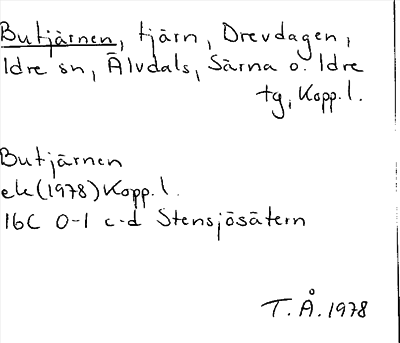 Butjärnen, tjärn, Drevdagen,
Idre sn, Älvdals, Särna o. Idre
tg, Kopp. l.
Butjärnen
ek (1978) Kopp. l.
16C 0-1 c-d Stensjösätern
T. Å. 1978